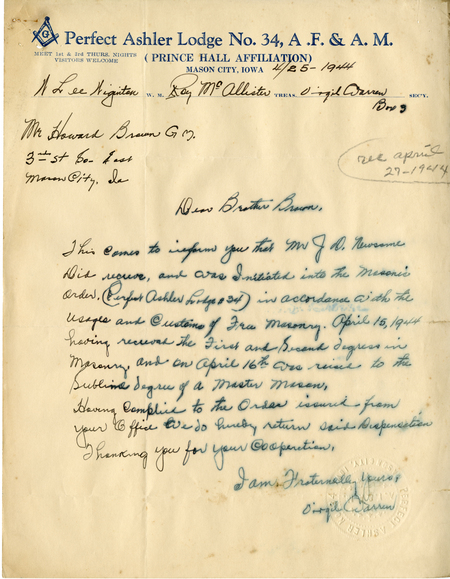 G
Perfect Ashler Lodge No. 34, A. F. & A. M.
MEET 1st & 3rd THURS. NIGHTS
VISITORS WELCOME
( PRINCE HALL AFFILIATION )
MASON CITY, IOWA 4/25-1944
W. M. Ray McAllister TREAS. Virgil Warren SEC'Y.
Box 3
Mr Howard Brown G M.
3rd St So- East
Mason City, Ia
rec april
27-1944
Dear Brother Brown.
This comes to inform you that Mr J D. Newsome
Did receive, and was Initiated into the Masonic
Order, (Perfect Ashler Lodge #34) in accordance with the
usages and Customs of Free Masonry. April 15, 1944
having received the First and Second degrees in
Masonry, and on April 16th was raise to the
Sublime degree of a Master Mason,
Having Complie to the Order issued from
your Office We do hereby return said Dispensation
Thanking you for your Cooperation,
I am Fraternally Yours,
Virgil Warren